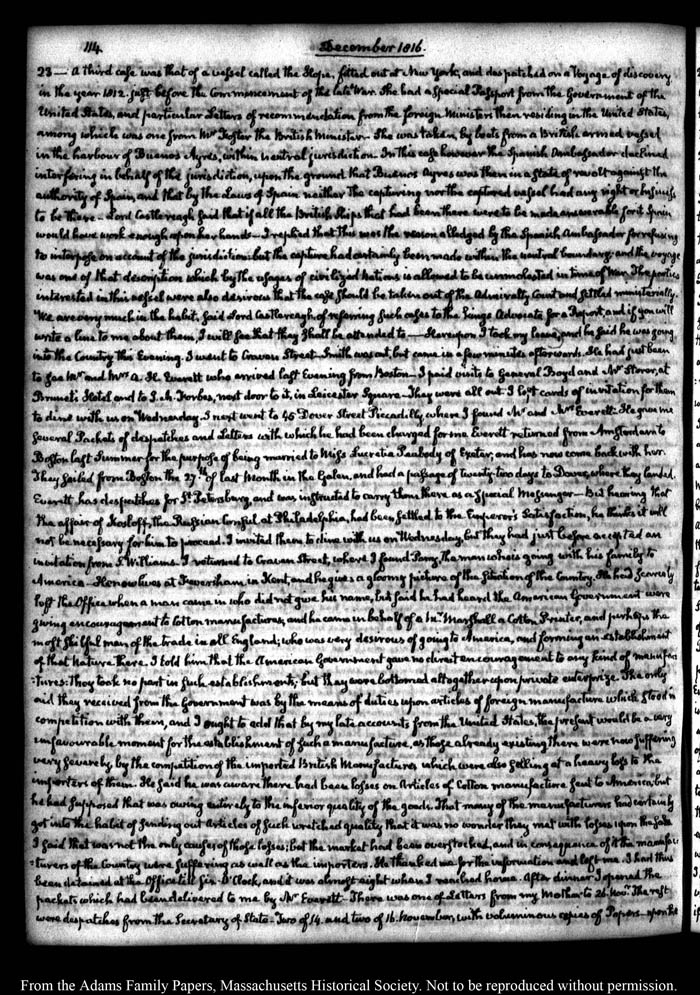 114
December 1816.
23 — A third case was that of a vessel called the Hope, fitted out at New York, and despatched on a Voyage of discovery
in the year 1812. just before the Commencement of the late War. She had a Special Passport from the Government of the
United States, and particular Letters of recommendation from the foreign Ministers then residing in the United States,
among which was one from Mr Foster the British Minister. She was taken, by boats from a British armed vessel
in the harbour of Buenos Ayres, within neutral jurisdiction. In this case however the Spanish Ambassador declined
interfering in behalf of the jurisdiction, upon the ground that Buenos Ayres was then in a State of revolt against the
authority of Spain, and that by the Laws of Spain neither the capturing nor the captured vessel had any right or business
to be there — Lord Castlereagh said that if all the British Ships that had been there were to be made answerable for it Spain
would have work enough upon her hands — I replied that this was the reason alledged by the Spanish Ambassador for refusing
to interpose on account of the jurisdiction: but the capture had certainly been made within the neutral boundary, and the voyage
was one of that description which by the usages of civilized Nations is allowed to be unmolested in time of War. The parties
interested in this vessel were also desirous that the case should be taken out of the Admiralty Court and settled ministerially.
We are very much in the habit, said Lord Castlereagh, of referring such cases to the Kings Advocate for a Report, and if you will
write a line to me about them, I will see that they shall be attended to — Hereupon I took my leave, and he said he was going
into the Country this Evening. I went to Craven Street. Smith was out, but came in a few minutes afterwards. He had just been
to see Mr and Mrs A. H. Everett who arrived last Evening from Boston — I paid visits to General Boyd and Mr Storer, at
Brunet's Hotel and to J. M. Forbes, next door to it, in Leicester Square — They were all out. I left cards of invitation for them
to dine with us on Wednesday. I next went to 45 Dover Street Piccadilly, where I found Mr and Mrs Everett: He gave me
several Packets of despatches and Letters with which he had been charged for me. Everett returned from Amsterdam to
Boston last Summer for the purpose of being married to Miss Lucretia Peabody of Exeter; and has now come back with her.
They sailed from Boston the 27th of last Month in the Galen, and had a passage of twenty-two days to Dover, where they landed.
Everett has despatches for St Petersburg, and was instructed to carry them there as a Special Messenger — But hearing that
the affair of Kosloff, the Russian Consul at Philadelphia, had been settled to the Emperor's Satisfaction, he thinks it will
not be necessary for him to proceed. I invited them to dine with us on Wednesday, but they had just before accepted an
invitation from S. Williams. I returned to Craven Street, where I found Parry, the man who is going with his family to
America — He now lives at Feversham in Kent, and he gives a gloomy picture of the Situation of the Country. He had scarcely
left the Office when a man came in who did not give his name, but said he had heard the American Government were
giving encouragement to Cotton manufactures, and he came in behalf of a Mr Marshall a Cotton Printer, and perhaps the
most skilful man of the trade in all England; who was very desirous of going to America, and forming an establishment
of that Nature there. I told him that the American Government gave no direct encouragement to any kind of manufac
-tures: they took no part in such establishments; but they were bottomed altogether upon private enterprize. The only
aid they received from the Government was by the means of duties upon articles of foreign manufacture which stood in
competition with them, and I ought to add that by my late accounts from the United States, the present would be a very
unfavourable moment for the establishment of such a manufacture, as those already existing there were now suffering
very severely, by the competition of the imported British Manufactures, which were also selling at a heavy loss to the
importers of them. He said he was aware there had been losses on Articles of Cotton manufacture sent to America; but
he had supposed that was owing entirely to the inferior quality of the goods. That many of the manufacturers had certainly
got into the habit of sending out Articles of such wretched quality that it was no wonder they met with losses upon the sale.
I said that was not the only cause of those losses; but the market had been overstocked, and in consequence of it the manufac
-turers of the Country were suffering as well as the importers. He thanked me for the information and left me. I had thus
been detained at the Office till six O'Clock, and it was almost eight when I reached home. After dinner I opened the
packets which had been delivered to me by Mr Everett — There was one of Letters from my Mother to 26. Novr. The rest
were despatches from the Secretary of State — Two of 14. and two of 16. November, with voluminous copies of Papers — upon the
From the Adams Family Papers, Massachusetts Historical Society. Not to be reproduced without permission.